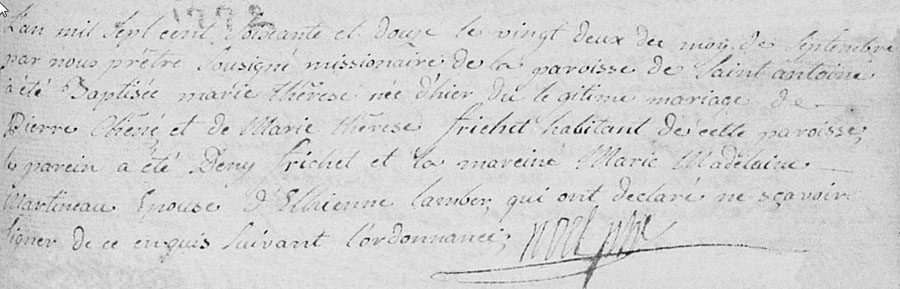 1772
L'an mil sept cent soixante et douze le vingt deux du moy de Septembre
par nous prêtre sousigné missionaire de la paroisse de Saint antoine
a été Baptisée marie thérese née d'hier du legitime mariage de
Pierre Chéné et de Marie thérese frichet habitant de cette paroisse;
le parein a été Deny frichet et la mareine Marie Madelaine
Martineau Epouse d'Ethienne lamber, qui ont declaré ne sçavoir
signer de ce enquis suivant l'ordonnance;